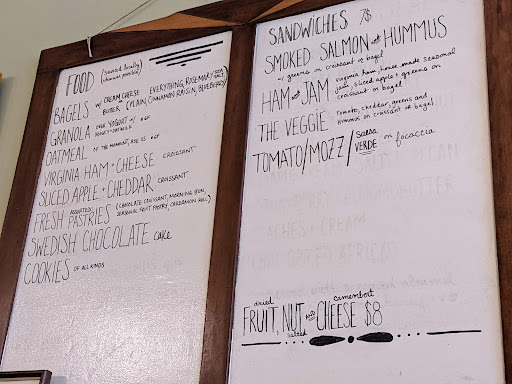 FOOD (sourced locally whenever possible)
BAGELS w/ CREAM CHEESE BUTTER
EVERYTHING, ROSEMARY/SEA SALT,
(PLAIN, CINNAMON RAISIN, BLUEBERRY)
GRANOLA OVER YOGURT w/ #GF
HONEY+OATMILK
OATMEAL OF THE MOMENT, ASK US #GF
VIRGINIA HAM + CHEESE CROISSANT
SLICED APPLE + CHEDDAR CROISSANT
FRESH ASSORTED PASTRIES (CHOCOLATE CROISSANT, MORNING BUN,
SEASONAL FRUIT PASTRY, CARDAMON ROLL)
SWEDISH CHOCOLATE cake
COOKIES OF ALL KINDS
SANDWICHES 7$
SMOKED SALMON and HUMMUS
w/ greens on croissant or bagel
HAM and JAM virginia ham, house made seasonal
jam, sliced apple + greens on
croissant or bagel
THE VEGGIE Tomato, cheddar, greens and
hummus on croissant or bagel
TOMATO/MOZZ/SALSA VERDE on focaccia
dried camembert
FRUIT, NUT, AND CHEESE $8
salted